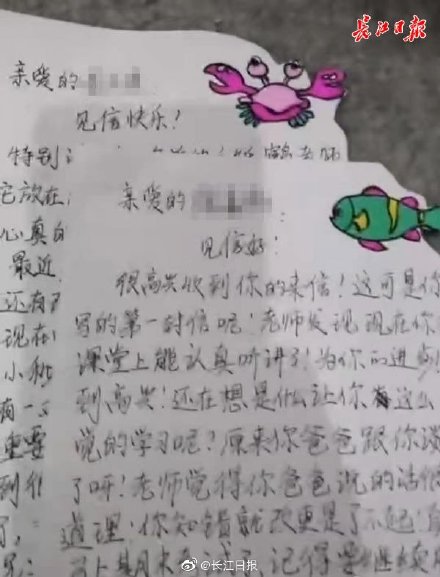 长江日报
亲爱的
见信快乐！
特别
它放在
心真
最近
还有
现在
小
有一
重要
到
了，
亲爱的
见信好：
很高兴收到你的来信！这可是你
写的第一封信呢！老师发现现在你
课堂上能认真听讲了！为你的进步
到高兴！还在想是什么让你有这么
觉的学习呢？原来你爸爸跟你谈
了呀！老师觉得你爸爸说的话很
道理，你知错就改更是了不起！
@长江日报